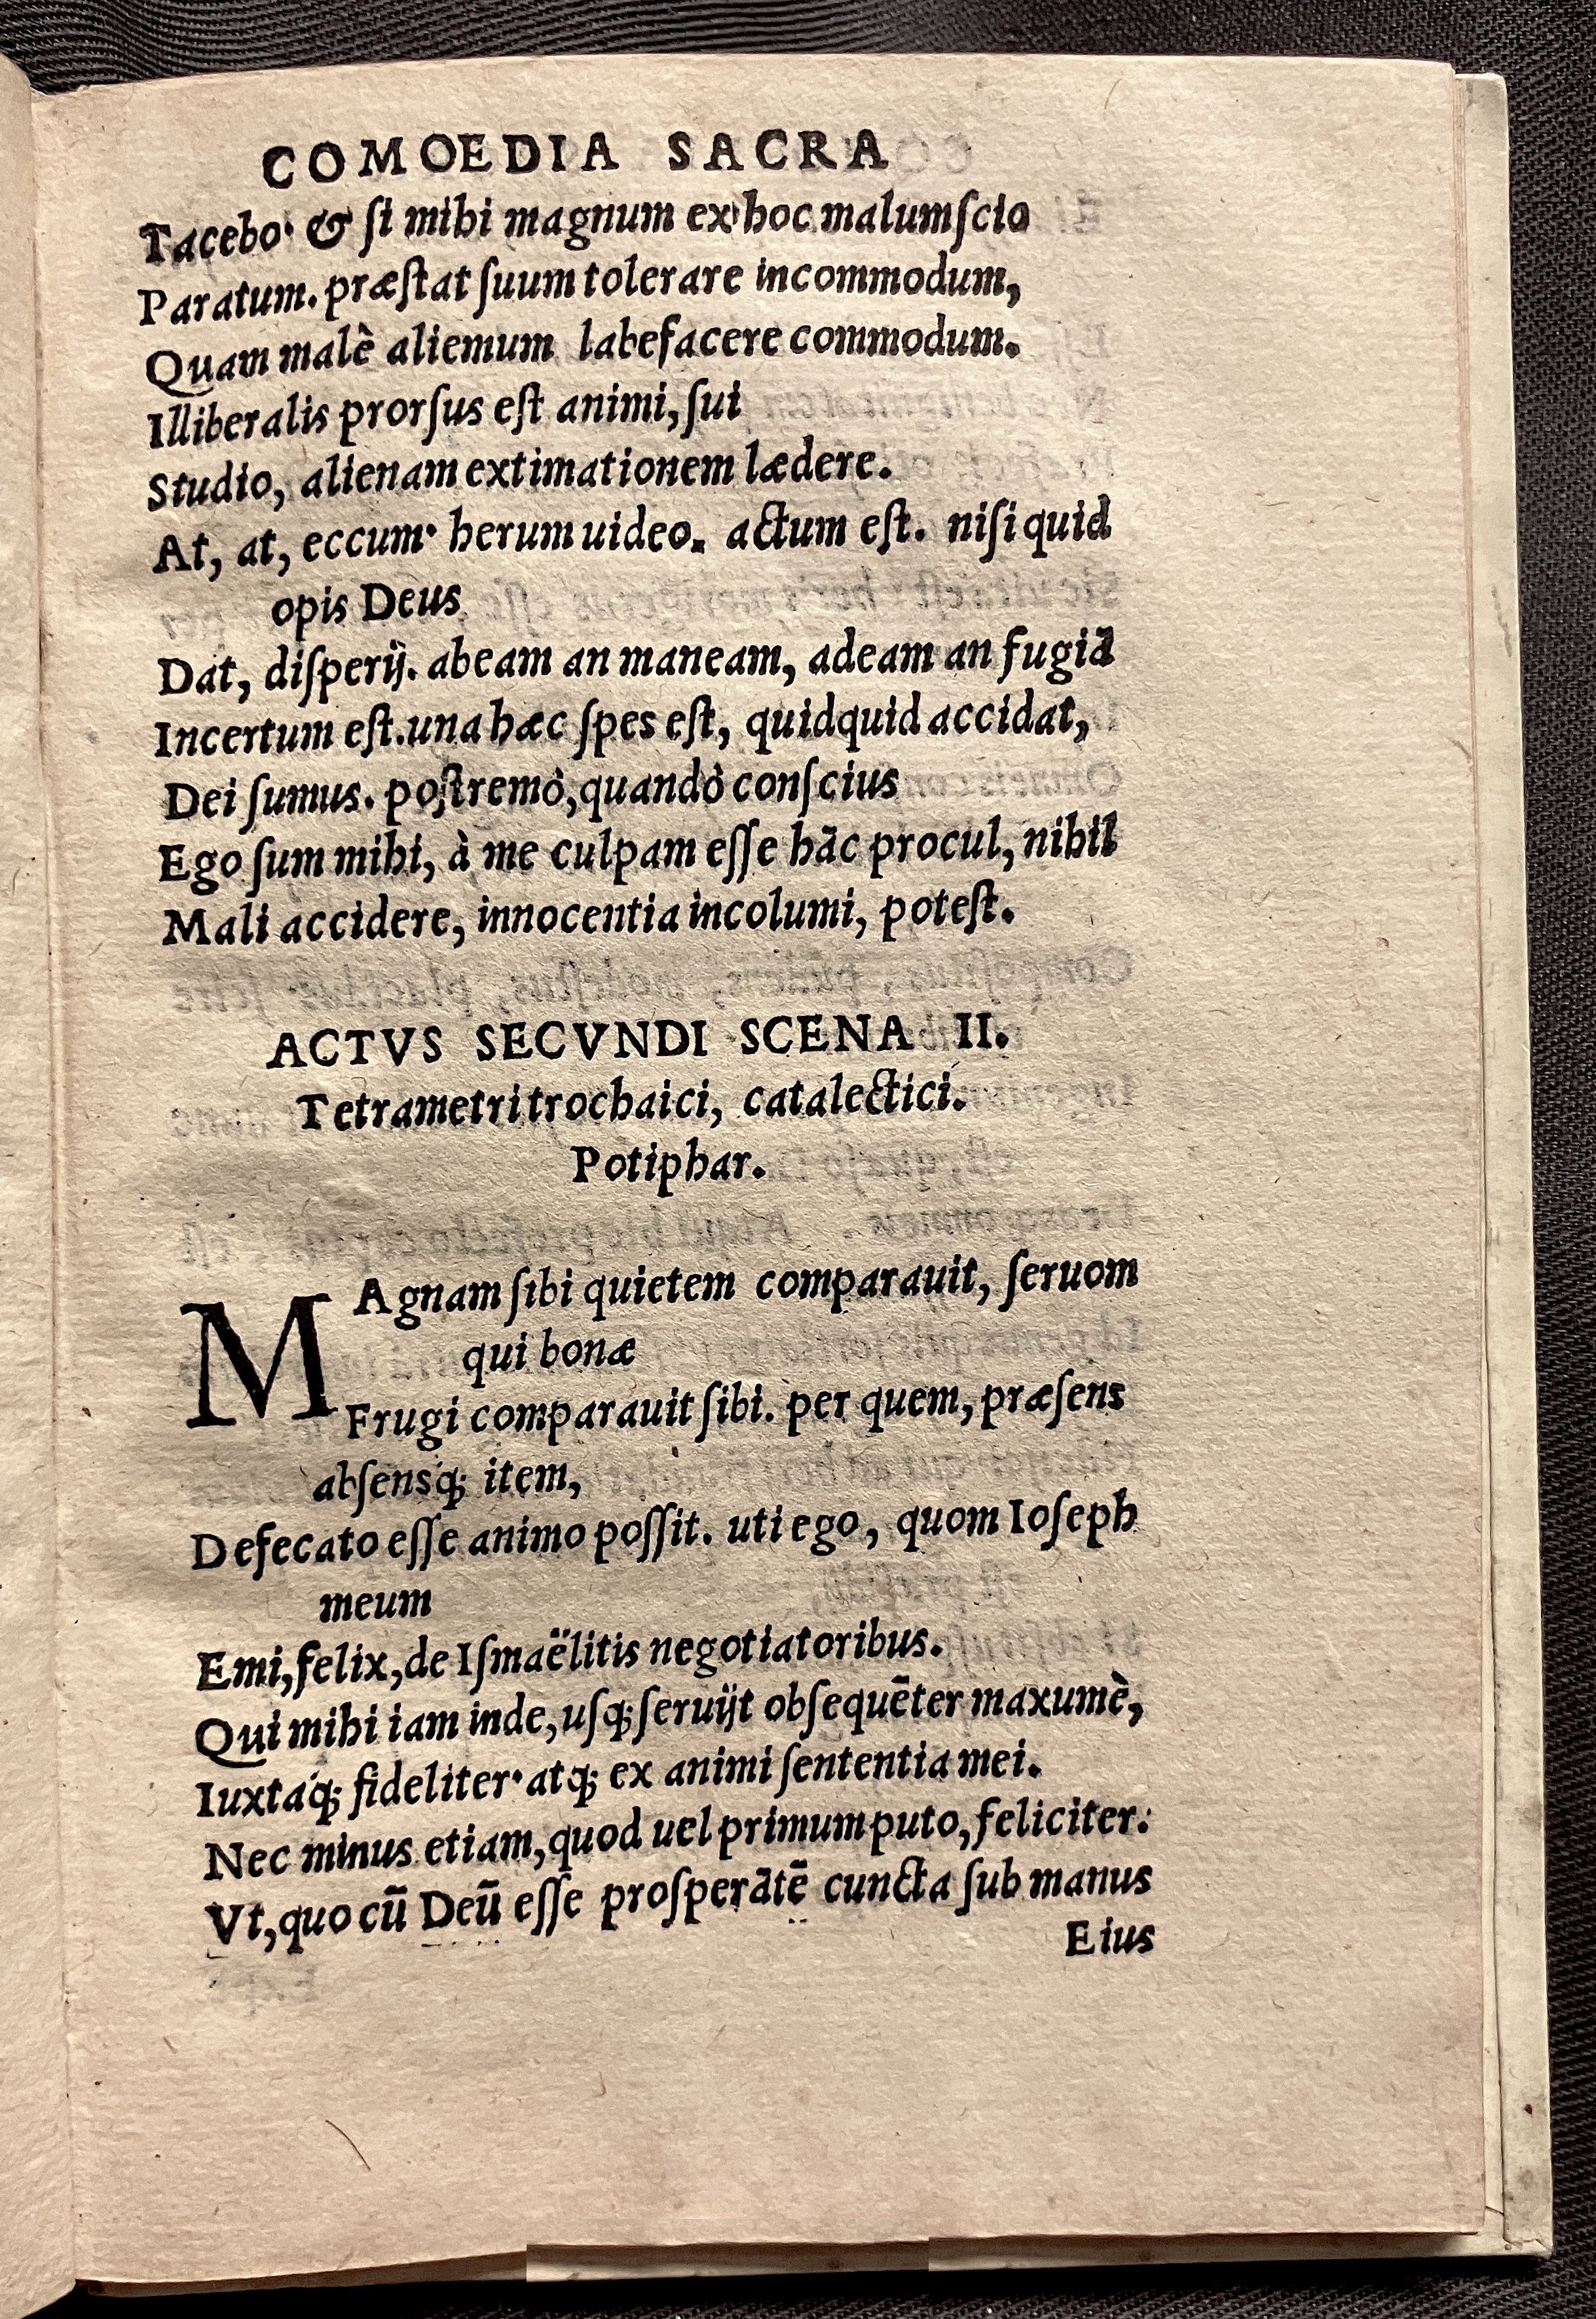 COMOEDIA SACRA
Tacebo· & ſi mihi magnum ex hoc malum ſcio
Paratum. præſtat ſuum tolerare incommodum,
Quam malè aliemum labefacere commodum.
Illiberalis prorſus eſt animi, ſui
Studio, alienam extimationem lædere.
At, at, eccum· herum uideo. actum eſt. niſi quid
opis Deus
Dat, diſperij. abeam an maneam, adeam an fugiā
Incertum eſt. una hæc ſpes eſt, quidquid accidat,
Dei ſumus. poſtremò, quandò conſcius
Ego ſum mihi, à me culpam eſſe hāc procul, nihil
Mali accidere, innocentia incolumi, poteſt.
ACTVS SECVNDI SCENA II.
Tetrametri trochaici, catalectici.
Potiphar.
MAgnam ſibi quietem comparauit, ſeruom
qui bonæ
Frugi comparauit ſibi. per quem, præſens
abſensq; item,
Defecato eſſe animo poſſit. uti ego, quom Ioſeph
meum
Emi, felix, de Iſmaëlitis negotiatoribus.
Qui mihi iam inde, uſq; ſeruijt obſequēter maxumè,
Iuxtaq; fideliter· atq; ex animi ſententia mei.
Nec minus etiam, quod uel primum puto, feliciter:
Vt, quo cū Deū eſſe proſperātē cuncta ſub manus
Eius